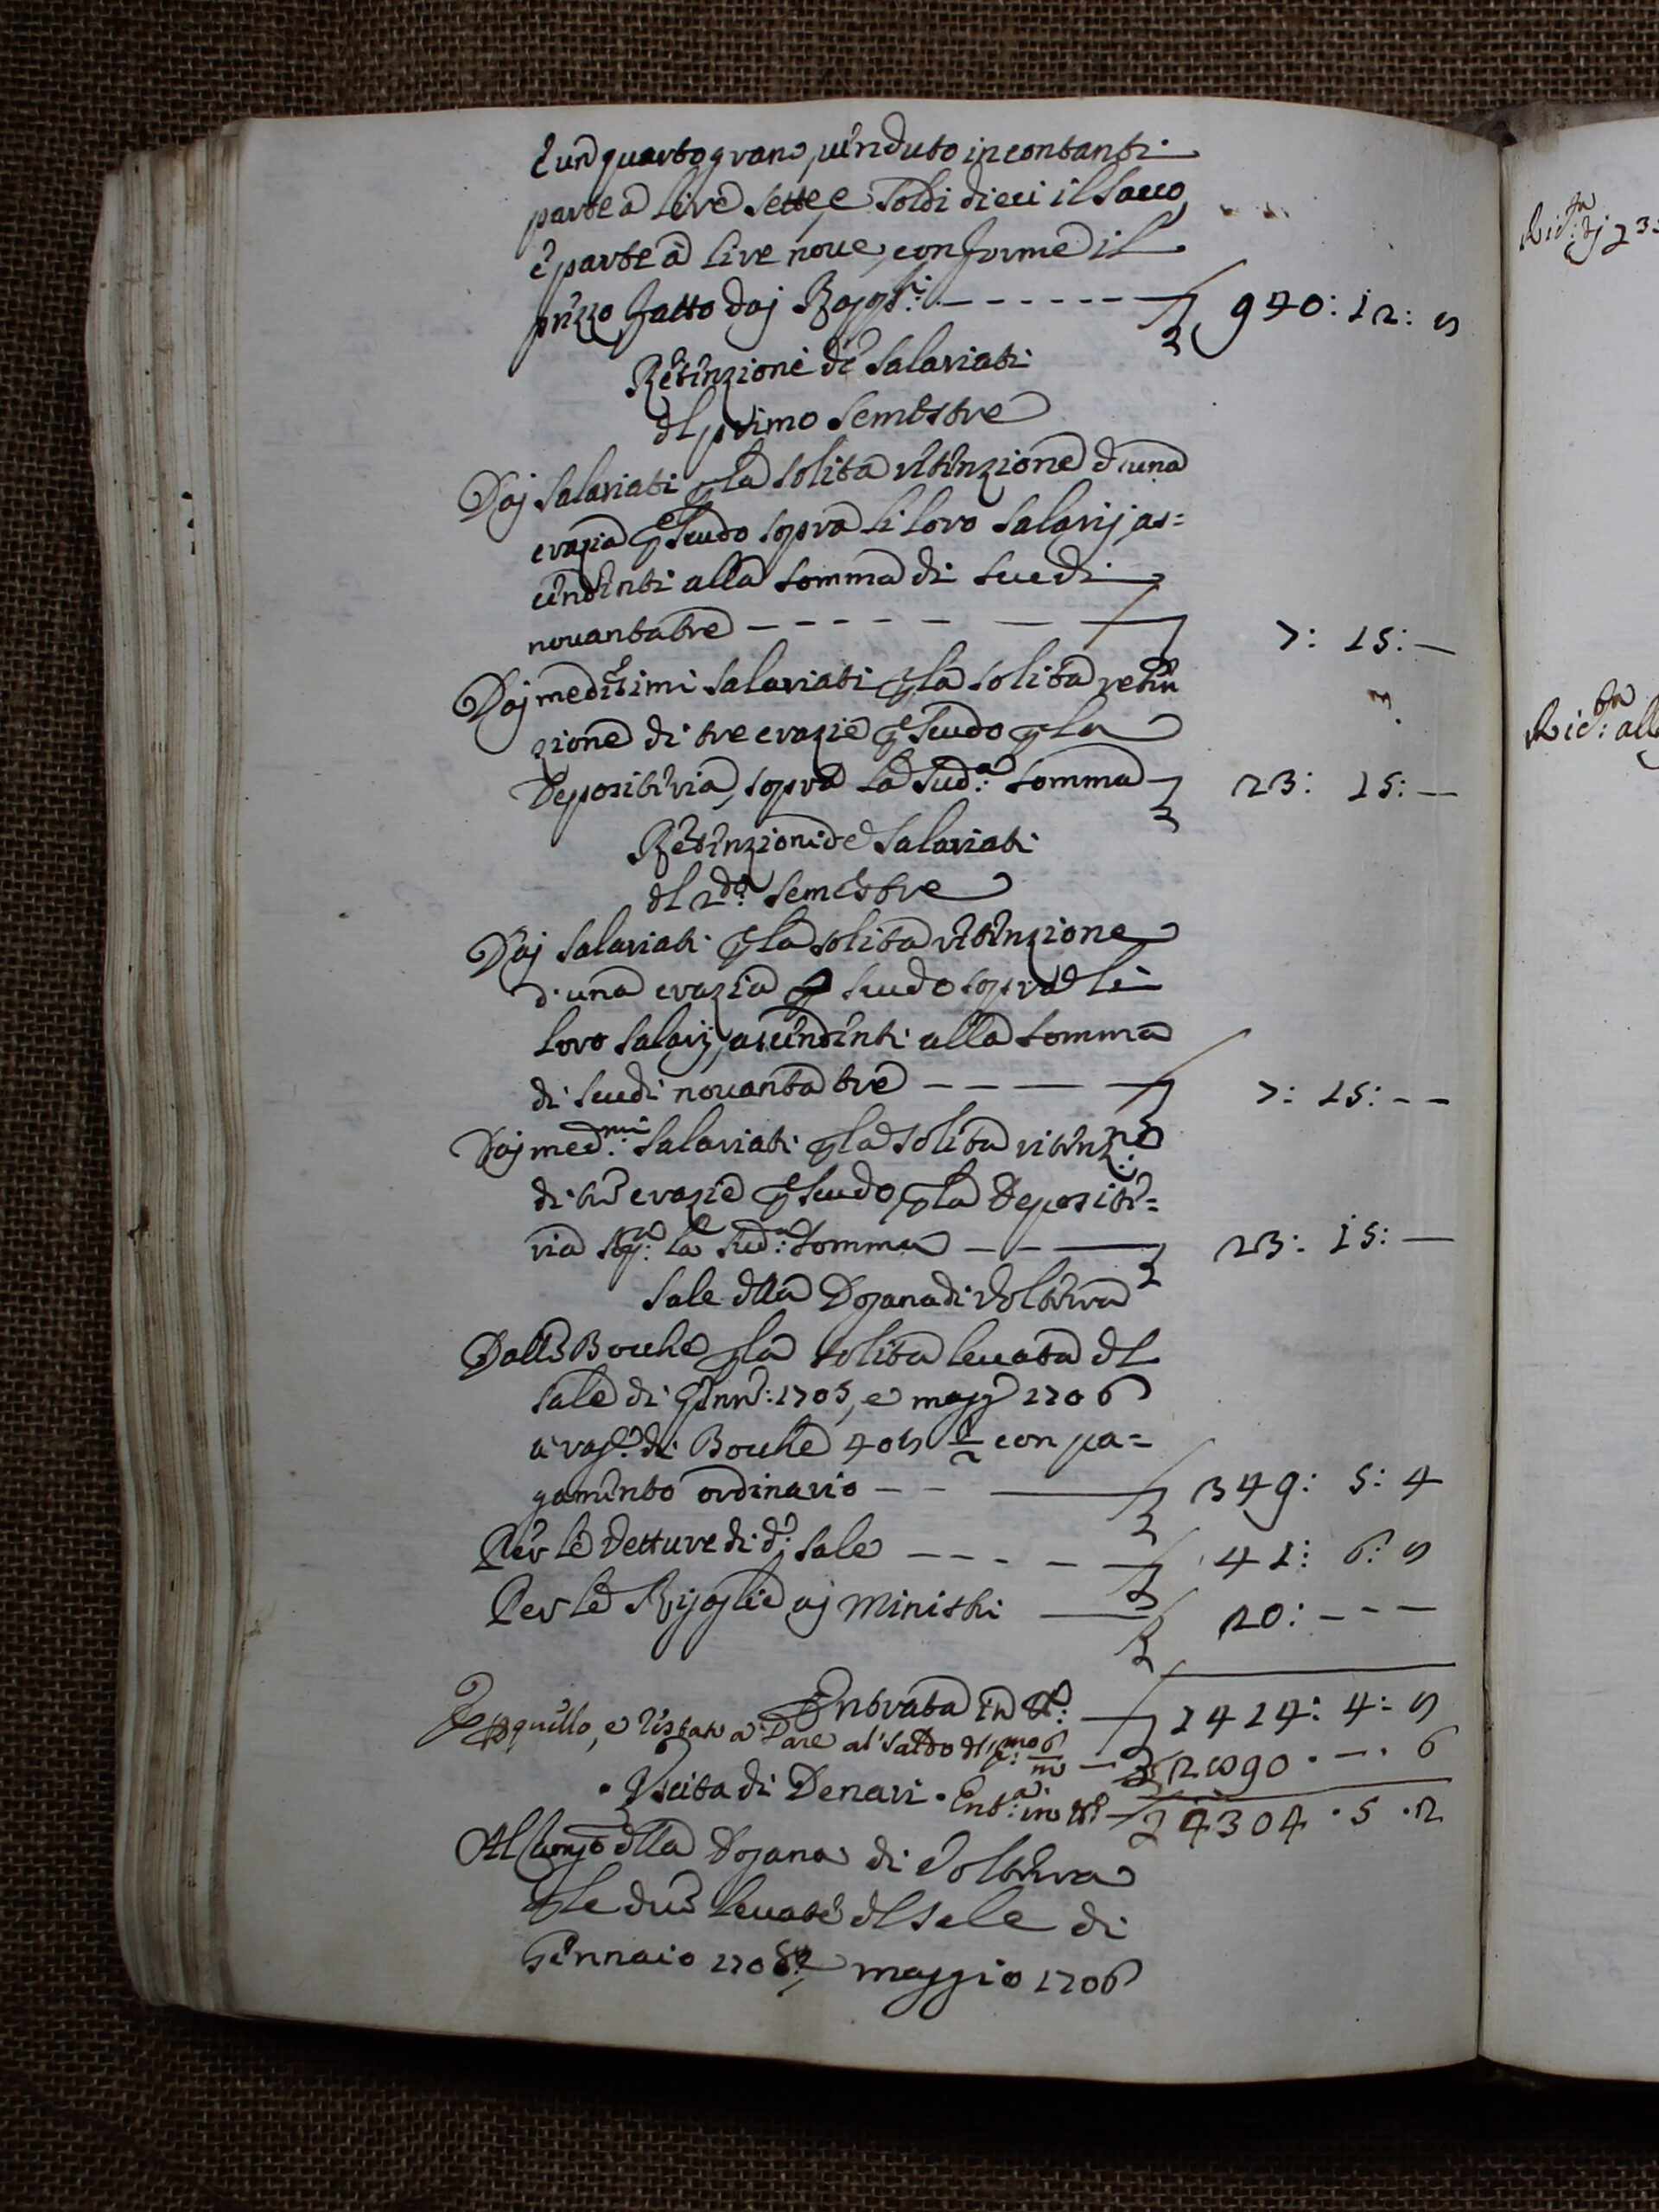 e un quarto grano, venduto in contanti
parte a lire sette, e soldi dieci il sacco,
e parte a lire noue, conforme il
prezzo fatto daj Rappti: ------ 940: 12: 8
Retenzione de Salariati
dl primo semestre
Daj Salariati p la solita ritenzione d'una
crazia p scudo sopra li loro salarij as=
cendenti alla somma di scudi
nouantatre ------ 7: 15: —
Daj medesimi Salariati p la solita reten
zione di tre crazie p scudo p la
Depositeria, sopra la sud.a somma 23: 15: —
Retenzioni de Salariati
dl 2do: semestre
Daj Salariati p la solita ritenzione
d'una crazia p scudo sopra li
loro salarij, ascendenti alla somma
di scudi nouanta tre ---- 7: 15: --
Daj med.mi Salariati p la solita ritenz.ne
di tre crazie p scudo, p la Deposite=
ria sop.a la sud.a somma --- 23: 15: —
Sale dlla Dogana di Volterra
Dalle Bocche p la solita leuata dl
sale di Genn: 1705, e magg 1706
a rag.e di Bocche 405 1/2 con pa=
gamento ordinario -- 349: 5: 4
Per le Vetture di d.o sale ----- 41: 6: 8
Per le ai Ministri — 20: ---
Entrata in tt.o: — 1414: 4: 8
e restati a Dare al saldo dl — 2890 . — . 6
Vscita di Denari . Ent.a in tt.o 4304 . 5 . 2
Al dlla Dogana di Volterra
p le due leuate dl sale di
Gennaio 1705, maggio 1706
Ric.ta dj 23
Ric.ta: all